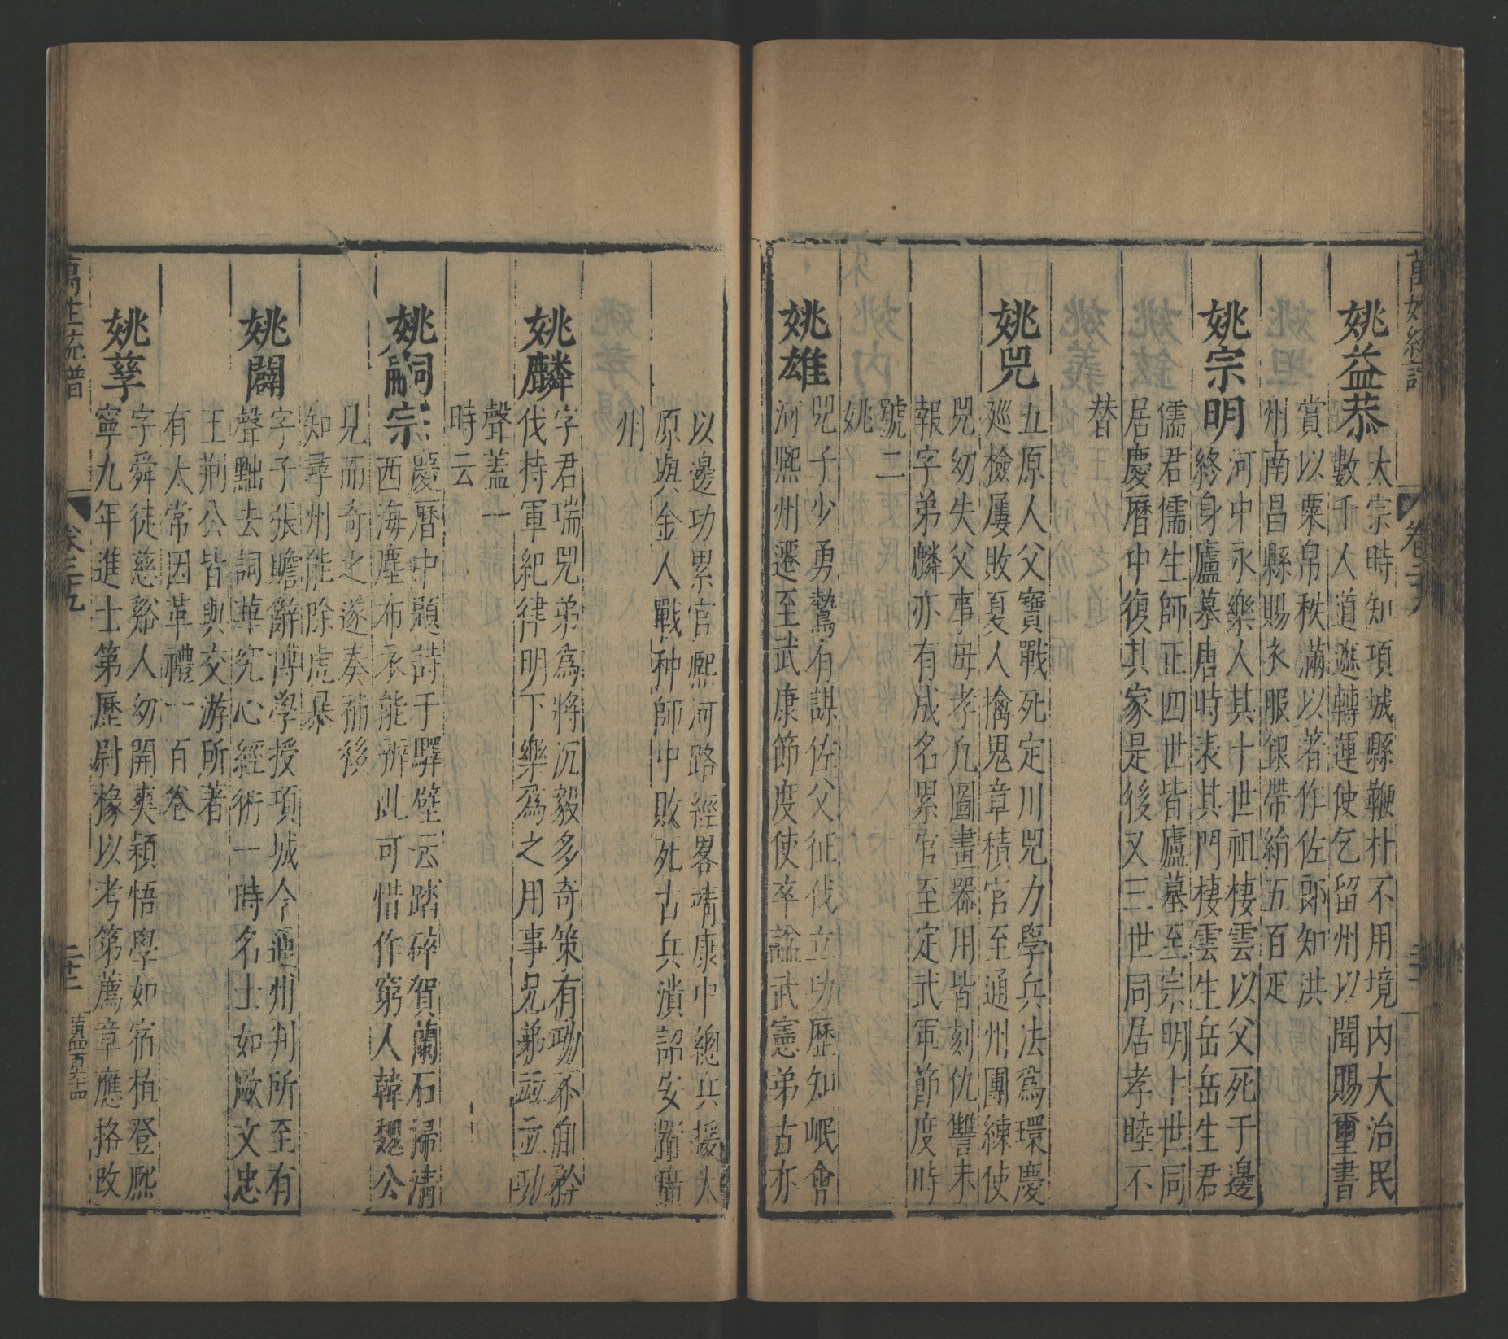 姚益恭
太宗時知項城縣鞭朴不用境内大治民
數千人道遮轉運使乞留州以聞賜璽書
賞以粟帛秩滿以著作佐郎知洪
州南昌縣賜衣服銀帶絹五百疋
姚宗明
河中永樂人其十世祖棲雲以父死于邊
終身廬墓唐時表其門棲雲生岳岳生君
儒君儒生師正四世皆廬墓至宗明上世同
居慶曆中復其家是後又三世同居孝睦不
替
姚兕
五原人父寶戰死定川兕力學兵法爲環慶
廵檢屢敗夏人擒鬼章積官至通州團練使
兕幼失父事母孝凢圖畫器用皆刻仇讐未
報字弟麟亦有成名累官至定武軍節度時
號二
姚
姚雄
兕子少勇鷙有謀佐父征伐立功歷知岷會
河熙州遷至武康節度使卒諡武憲弟古亦
以邊功累官熙河路經畧靖康中總兵援人
原與金人戰种師中敗死古兵潰詔安置廣
州
姚麟
字君瑞兕弟爲將沉毅多奇策有功不自矜
伐持軍紀律明下樂爲之用事兄弟並立功
聲蓋一
時云
姚嗣宗
慶曆中題詩于驛壁云踏碎賀蘭石掃清
西海塵布衣能辨此可惜作窮人韓魏公
見而奇之遂奏補後
知尋州能除虎暴
姚闢
字子張瞻辭博學授項城令通州判所至有
聲黜去詞華究心經術一時名士如歐文忠
王荊公皆與交游所著
有太常因革禮一百卷
姚孳
字舜徒慈谿人幼開爽穎悟學如宿植登熙
寧九年進士第歷尉掾以考第薦章應格改
萬姓統譜
卷二十九